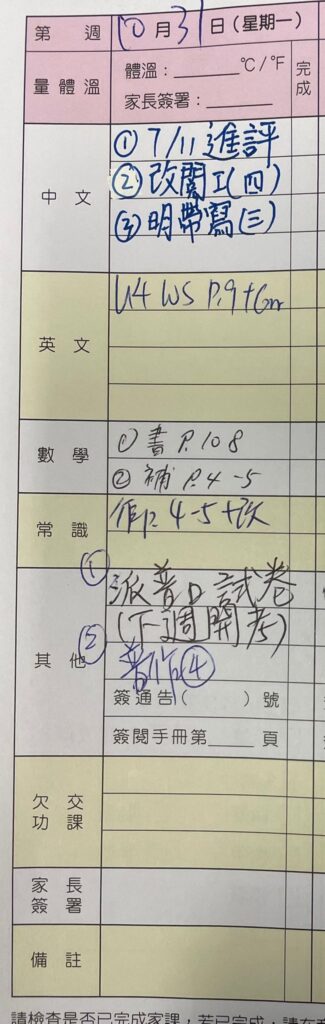 第 週 10月31日(星期一)
量體溫 體溫:______°C/°F 完成
家長簽署:______
中文 ① 7/11 進評
② 改閱工(四)
③ 明帶寫(三)
英文 U4 WS P.9+Grr
數學 ① 書 P.108
② 補 P.4-5
常識 作P. 4-5+改
其他 ① 派普口試卷
(下週開考)
② 普作④
簽通告( )號
簽閱手冊第____頁
欠交功課
家長簽署
備註
請檢查是否已完成家課,若已完成,請在